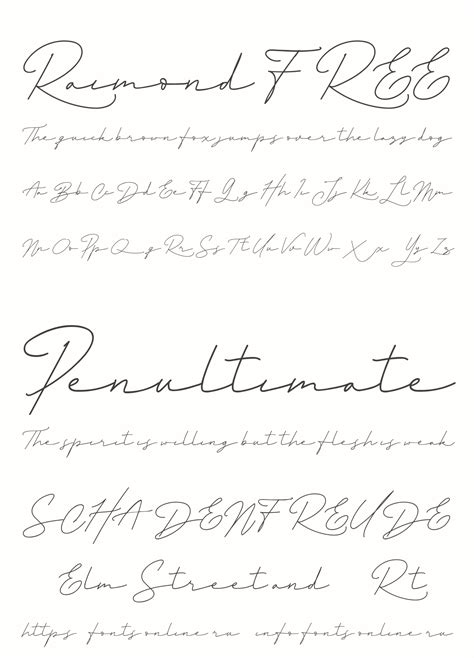 Raimond FREE
The quick brown fox jumps over the lazy dog
Aa Bb Cc Dd Ee Ff Gg Hh Ii Jj Kk Ll Mm
Nn Oo Pp Qq Rr Ss Tt Uu Vv Ww Xx Yy Zz
Penultimate
The spirit is willing but the flesh is weak
SCHADENFREUDE
Elm Street and Rt
https fontsonline ru info fontsonline ru